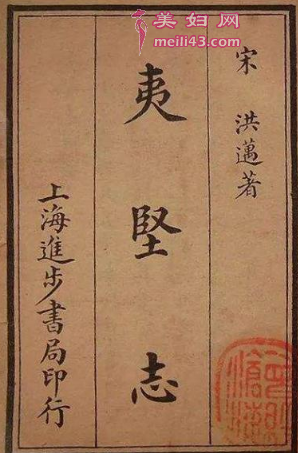 美妇网
meili43.com
宋 洪邁著
夷堅志
上海進步書局印行